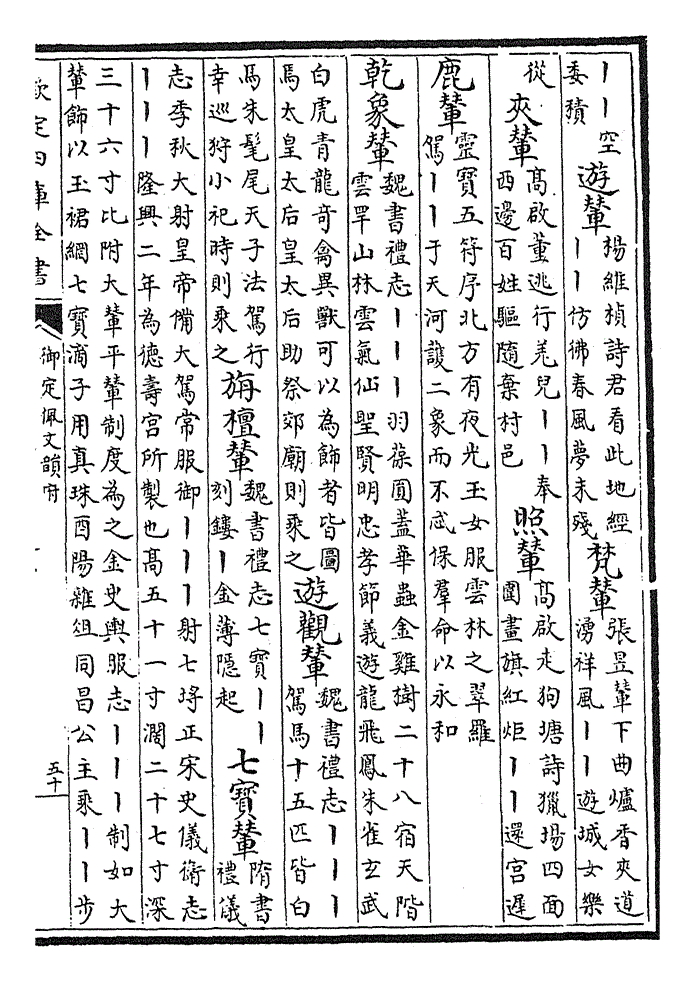 丨丨空
委積
遊輦
楊維楨詩君看此地經
丨丨仿彿春風夢未殘
梵輦
張昱輦下曲爐香夾道
湧祥風丨丨遊城女樂
從
夾輦
高啟董逃行羌兒丨丨奉
西邊百姓驅隨棄村邑
照輦
高啟走狗塘詩獵場四面
圍畫旗紅炬丨丨還宮遲
鹿輦
靈寶五符序北方有夜光玉女服雲林之翠羅
駕丨丨于天河護二象而不忒保羣命以永和
乾象輦
魏書禮志丨丨丨羽葆圓蓋華蟲金雞樹二十八宿天階
雲罕山林雲氣仙聖賢明忠孝節義遊龍飛鳳朱雀玄武
白虎青龍奇禽異獸可以為飾者皆圖
馬太皇太后皇太后助祭郊廟則乘之
遊觀輦
魏書禮志丨丨丨
駕馬十五匹皆白
馬朱髦尾天子法駕行
幸巡狩小祀時則乘之
旃檀輦
魏書禮志七寶丨丨
刻鏤丨金薄隱起
七寶輦
隋書
禮儀
志季秋大射皇帝備大駕常服御丨丨丨射七埓正宋史儀衛志
丨丨丨隆興二年為德壽宮所製也高五十一寸濶二十七寸深
三十六寸比附大輦平輦制度為之金史輿服志丨丨丨制如大
輦飾以玉裙網七寶滴子用真珠酉陽雜俎同昌公主乘丨丨步
欽定四庫全書
御定佩文韻府
五十